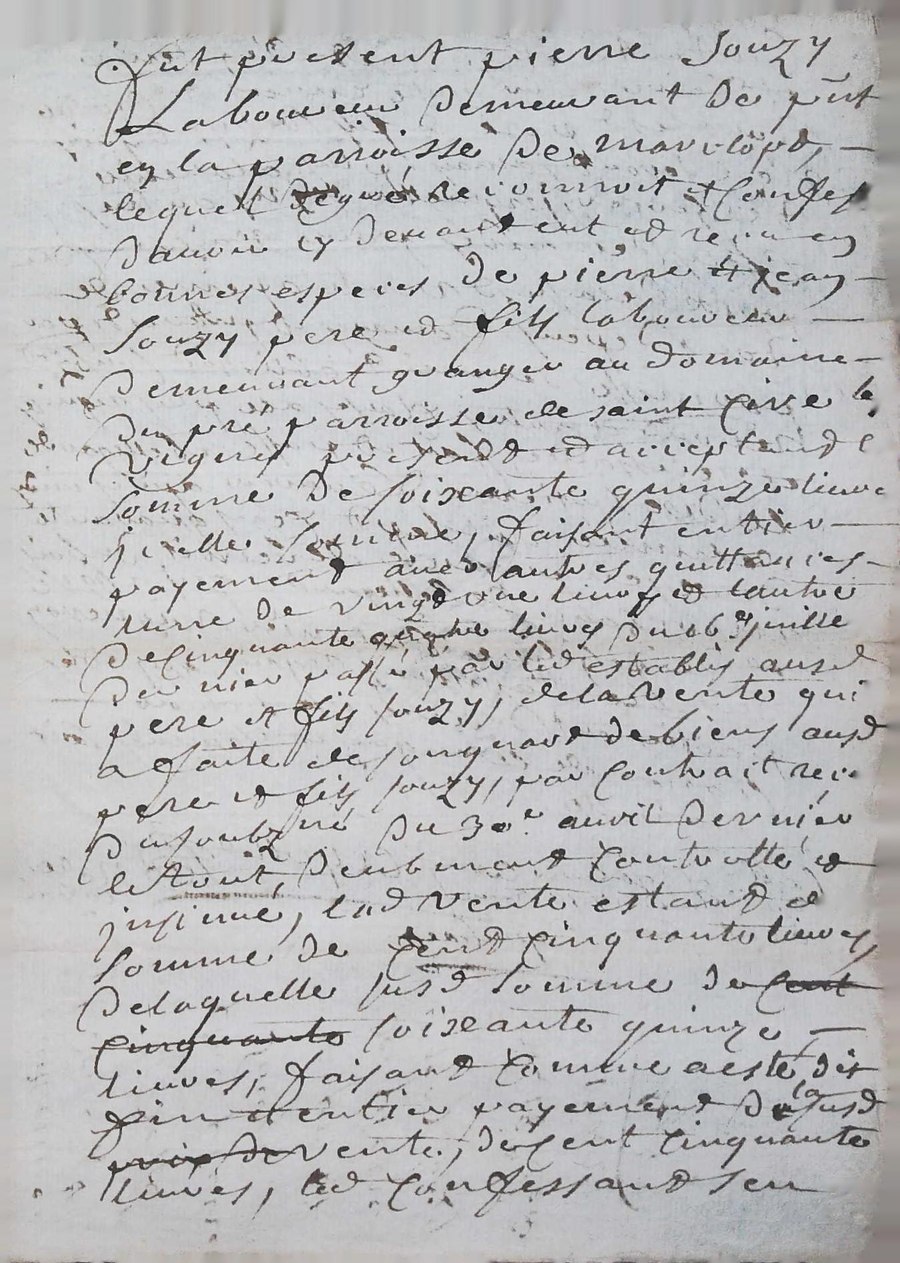 fut present pierre Souzy
Laboureur demeurant de pñt
en la parroisse de marclopt,
lequel de gré reconnoit et Confes
d'avoir cy devant eut et receu en
bonnes especes, de pierre et jean
Souzy pere et fils laboureur
demeurant granger au domaine
du pré parroisse de saint Cire le
vignes presents et acceptant l
somme de soixante quinze livre
jcelle somme, faisant entier
payement avec autres quittances
lune de vingt une livres et lautre
de Cinquante quatre livres du 16e juille
dernier passé par led establis ausd
pere et fils souzy, de la vente qui
a faite de sonquart de biens ausd
pere et fils souzy, par Contrait reçu
du soubzné du 30e avril dernier
le tout, deubment Controllé et
jnsinue, lad vente estant de
somme de Cent Cinquante livres
de laquelle susd somme de Cent
Cinquante soixante quinze
livres, faisant Comme a esté dit
fin et entier payement de la susd
prix de vente, de Cent Cinquante
livres, led Confessant sen